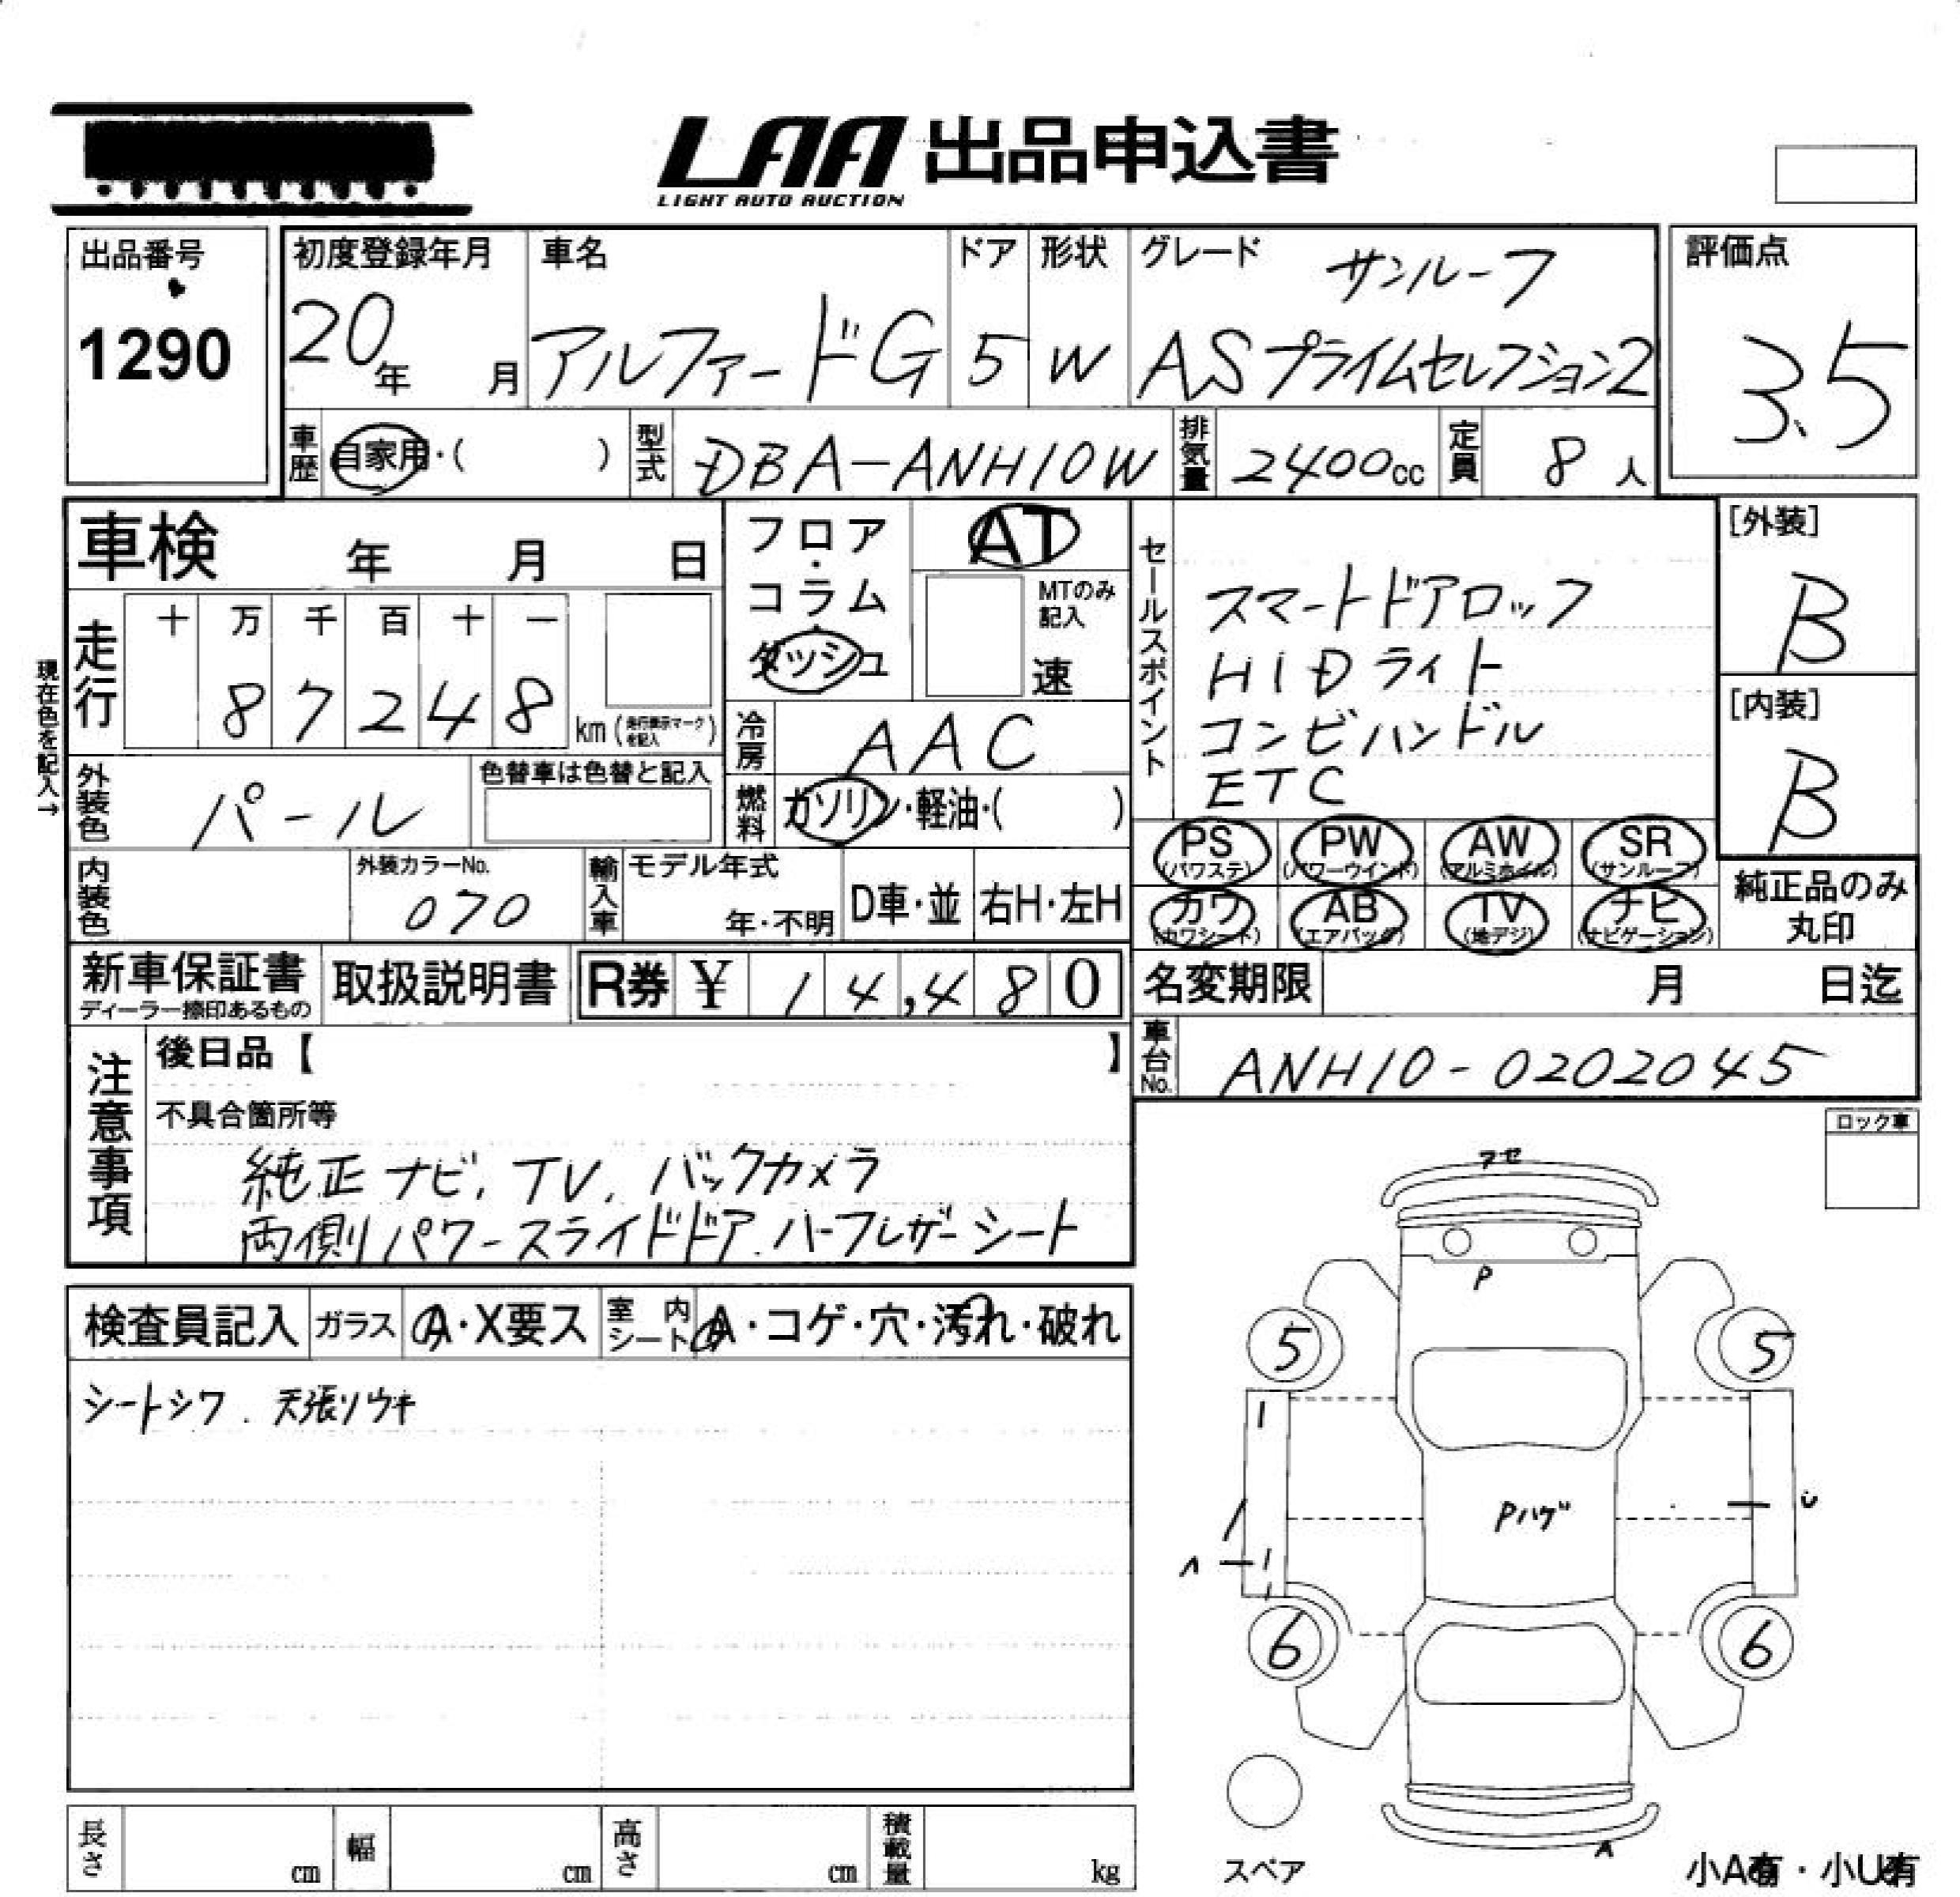 LAA 出品申込書
LIGHT AUTO AUCTION
出品番号
1290
初度登録年月
20年 月
車名
アルファードG
ドア
5
形状
W
グレード
サンルーフ
ASプライムセレクション2
評価点
3.5
車歴 自家用・( )
型式 DBA-ANH10W
排気量 2400cc
定員 8人
車検 年 月 日
現在色を記入→
走行
十 万 千 百 十 一
8 7 2 4 8 km (走行表示マークを記入)
フロア・コラム・ダッシュ
AT
MTのみ記入
速
冷房 AAC
燃料 ガソリン・軽油・( )
外装色 パール
色替車は色替と記入
内装色
外装カラーNo.
070
輸入車
モデル年式
年・不明
D車・並
右H・左H
セールスポイント
スマートドアロック
HIDライト
コンビハンドル
ETC
[外装]
B
[内装]
B
PS (パワステ) PW (パワーウインド) AW (アルミホイル) SR (サンルーフ)
カワ (カワシート) AB (エアバック) TV (地デジ) ナビ (ナビゲーション)
純正品のみ丸印
新車保証書
ディーラー捺印あるもの
取扱説明書
R券 ¥ 14,480
名変期限 月 日迄
車台No. ANH10-0202045
注意事項
後日品【 】
不具合箇所等
純正ナビ、TV、バックカメラ
両側パワースライドドア.ハーフレザーシート
ロック車
検査員記入 ガラス A・X要ス 室内シート A・コゲ・穴・汚れ・破れ
シートシワ. 天張リウキ
P
5 5
Pハゲ
6 6
A
スペア
小A有・小U有
長さ cm 幅 cm 高さ cm 積載量 kg